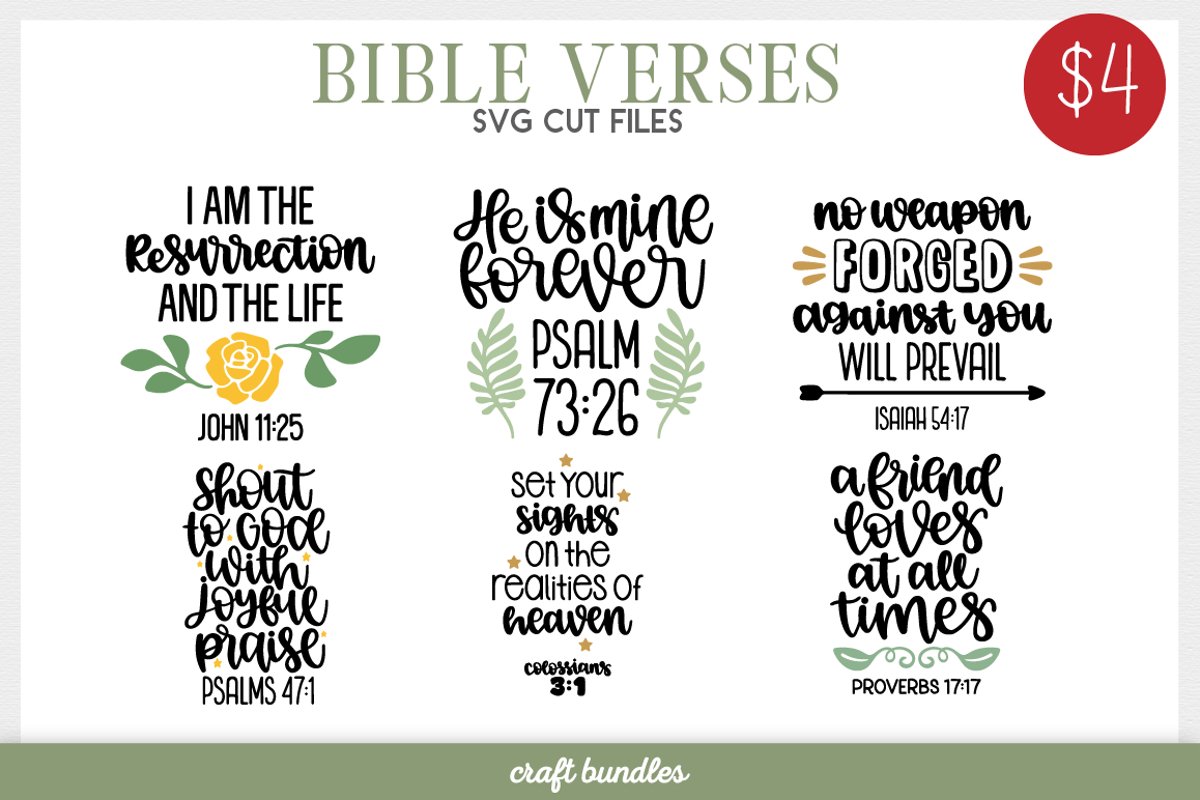 BIBLE VERSES
SVG CUT FILES
$4
I AM THE
Resurrection
AND THE LIFE
JOHN 11:25
He is mine
forever
PSALM
73:26
no weapon
FORGED
against you
WILL PREVAIL
ISAIAH 54:17
shout
to God
with
joyful
praise
PSALMS 47:1
set your
sights
on the
realities of
heaven
colossians
3:1
a friend
loves
at all
times
PROVERBS 17:17
craft bundles